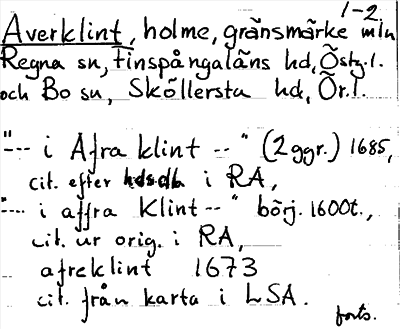 1-2
Averklint, holme, gränsmärke mln
Regna sn, Finspångaläns hd, Östg.l.
och Bo sn, Sköllersta hd, Ör.l.
"--- i Afra klint --" (2 ggr.) 1685,
cit. efter hdsdb i RA,
"--- i affra Klint --" börj. 1600t.,
cit. ur orig. i RA,
afreklint 1673
cit. från karta i LSA.
forts.